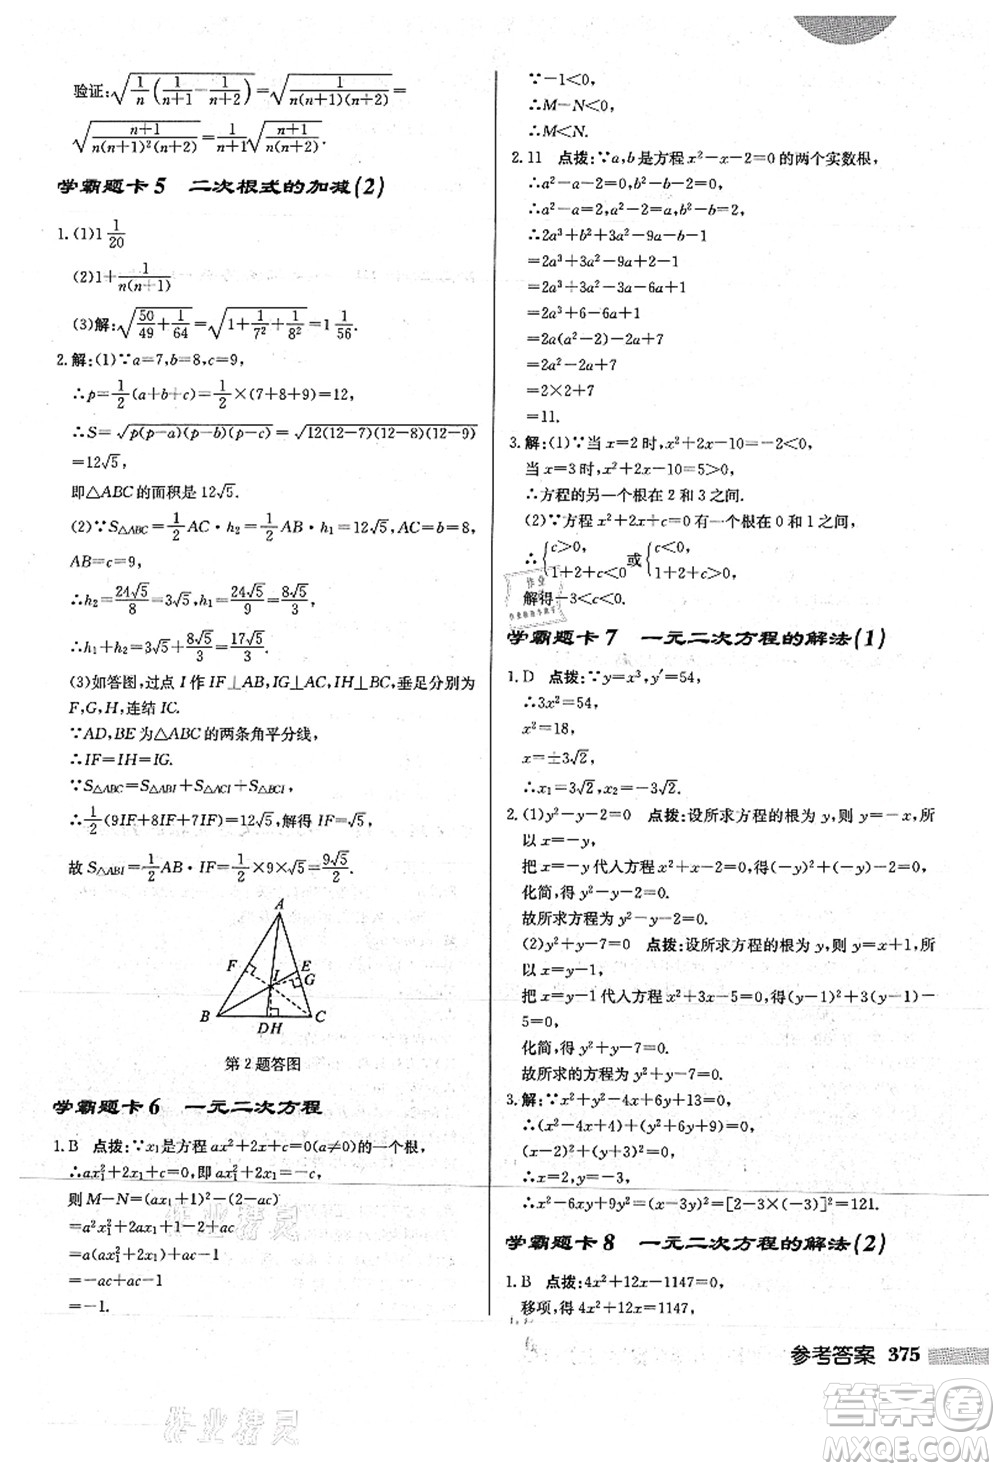 验证:√(1/n(1/(n+1)−1/(n+2)))=√(1/(n(n+1)(n+2)))=
√((n+1)/(n(n+1)²(n+2)))=1/(n+1)√((n+1)/(n(n+2))).
学霸题卡5 二次根式的加减(2)
1.(1)1 1/20
(2)1+1/(n(n+1))
(3)解:√(50/49+1/64)=√(1+1/7²+1/8²)=1 1/56.
2.解:(1)∵a=7,b=8,c=9,
∴p=1/2(a+b+c)=1/2×(7+8+9)=12,
∴S=√(p(p−a)(p−b)(p−c))=√(12(12−7)(12−8)(12−9))
=12√5,
即△ABC的面积是12√5.
(2)∵S△ABC=1/2AC·h₂=1/2AB·h₁=12√5,AC=b=8,
AB=c=9,
∴h₂=24√5/8=3√5,h₁=24√5/9=8√5/3,
∴h₁+h₂=8√5/3+3√5=17√5/3.
(3)如答图,过点I作IF⊥AB,IG⊥AC,IH⊥BC,垂足分别为
F,G,H,连结IC.
∵AD,BE为△ABC的两条角平分线,
∴IF=IH=IG.
∵S△ABC=S△ABI+S△ACI+S△BCI,
∴1/2(9IF+8IF+7IF)=12√5,解得IF=√5,
故S△ABI=1/2AB·IF=1/2×9×√5=9√5/2.
A
F
E
I
G
B
DH
C
第2题答图
学霸题卡6 一元二次方程
1.B 点拨:∵x₁是方程ax²+2x+c=0(a≠0)的一个根,
∴ax₁²+2x₁+c=0,即ax₁²+2x₁=−c,
则M−N=(ax₁+1)²−(2−ac)
=a²x₁²+2ax₁+1−2+ac
=a(ax₁²+2x₁)+ac−1
=−ac+ac−1
=−1.
∵−1<0,
∴M−N<0,
∴M<N.
2.11 点拨:∵a,b是方程x²−x−2=0的两个实数根,
∴a²−a−2=0,b²−b−2=0,
∴a²−a=2,a²=2+a,b²−b=2,
∴2a³+b²+3a²−9a−b−1
=2a³+3a²−9a+1
=2a³+3(2+a)−9a+1
=2a³+6−6a+1
=2a(a²−3)+7
=2a(2+a−3)+7
=2(a²−a)+7
=2×2+7
=11.
3.解:(1)∵当x=2时,x²+2x−10=−2<0,
当x=3时,x²+2x−10=5>0,
∴方程的另一个根在2和3之间.
(2)∵方程x²+2x+c=0有一个根在0和1之间,
∴{c>0, 1+2+c<0 或{c<0, 1+2+c>0,
解得−3<c<0.
学霸题卡7 一元二次方程的解法(1)
1.D 点拨:∵y=x³,y′=54,
∴3x²=54,
x²=18,
x=±3√2,
∴x₁=3√2,x₂=−3√2.
2.(1)y²−y−2=0 点拨:设所求方程的根为y,y=−x,所
以x=−y.
把x=−y代入方程x²+x−2=0,得(−y)²+(−y)−2=0,
化简,得y²−y−2=0.
故所求方程为y²−y−2=0.
(2)y²+y−7=0 点拨:设所求方程的根为y,y=x+1,所
以x=y−1,
把x=y−1代入方程x²+3x−5=0,得(y−1)²+3(y−1)−
5=0,
化简,得y²+y−7=0,
故所求方程为y²+y−7=0.
3.解:∵x²+y²−4x+6y+13=0,
∴(x²−4x+4)+(y²+6y+9)=0,
(x−2)²+(y+3)²=0,
∴x=2,y=−3,
∴x²−6xy+9y²=(x−3y)²=[2−3×(−3)]²=121.
学霸题卡8 一元二次方程的解法(2)
1.B 点拨:4x²+12x−1147=0,
移项,得4x²+12x=1147,
参考答案 375
作业精灵
作业精灵
答案圈
MXQE.COM